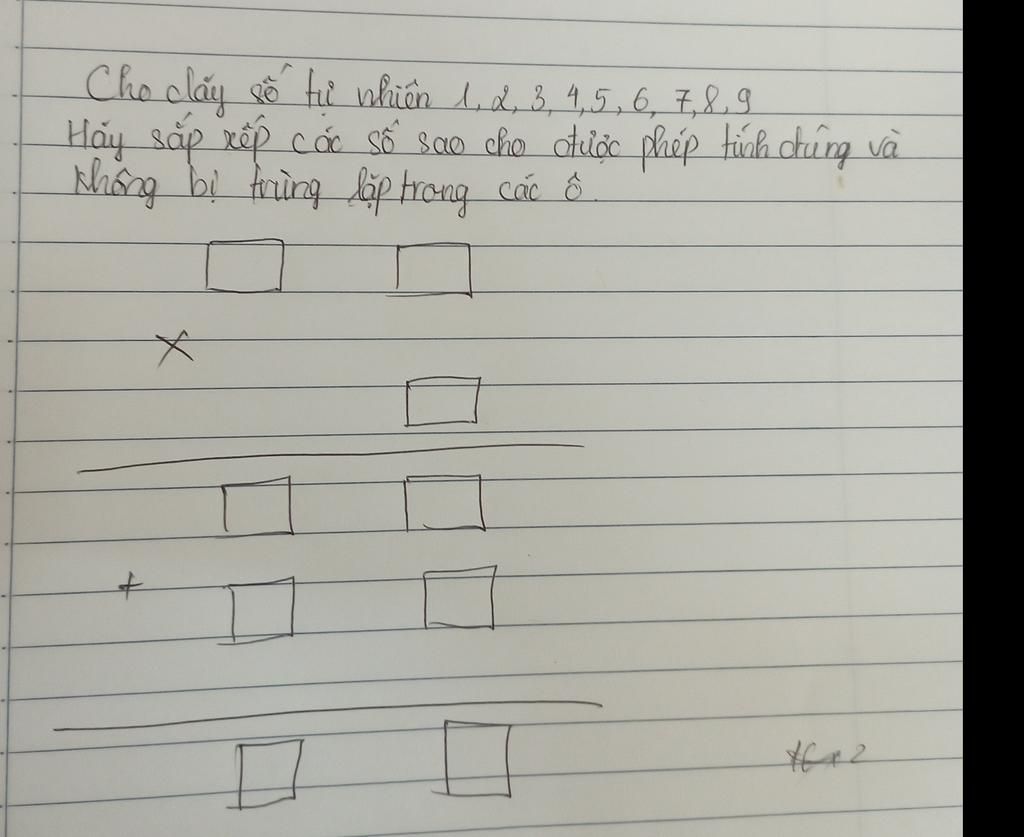 Cho dãy số tự nhiên 1, 2, 3, 4, 5, 6, 7, 8, 9
Hãy sắp xếp các số sao cho được phép tính đúng và
không bị trùng lặp trong các ô.
×
+